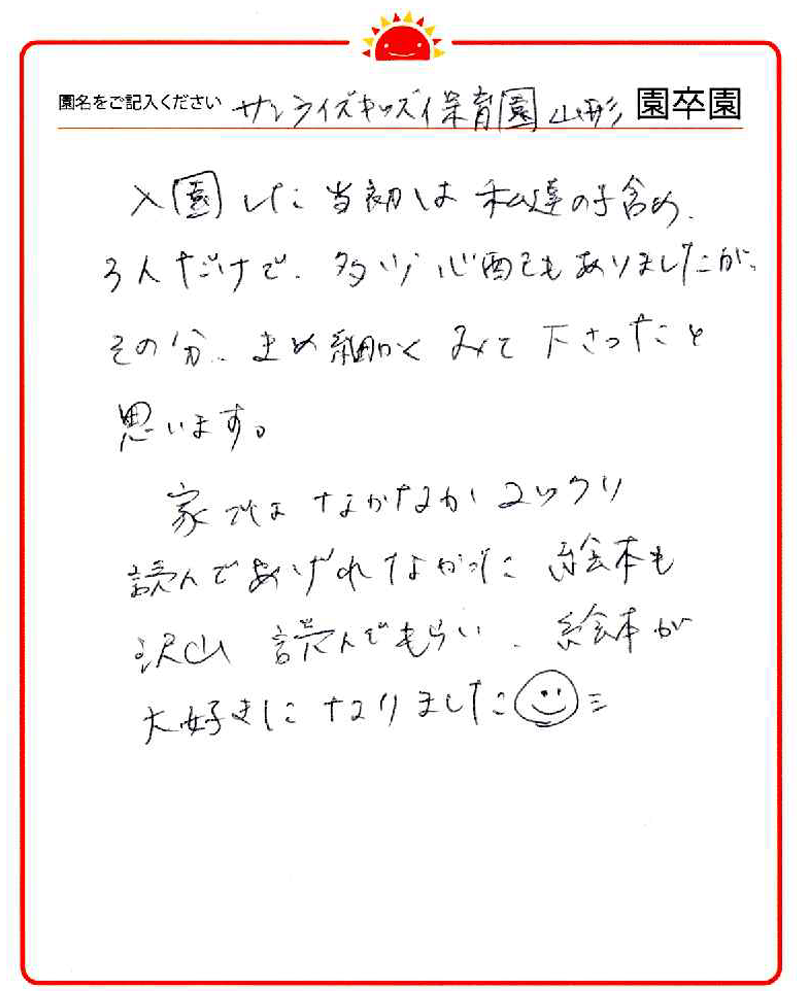 園名をご記入ください サンライズキッズ保育園山形 園卒園
入園した当初は 私達の子含め、
3人だけで、多少心配もありましたが、
その分、まめ細かくみて下さったと
思います。
家では なかなか ユックリ
読んであげれなかった 絵本も
沢山 読んでもらい、絵本が
大好きに なりました